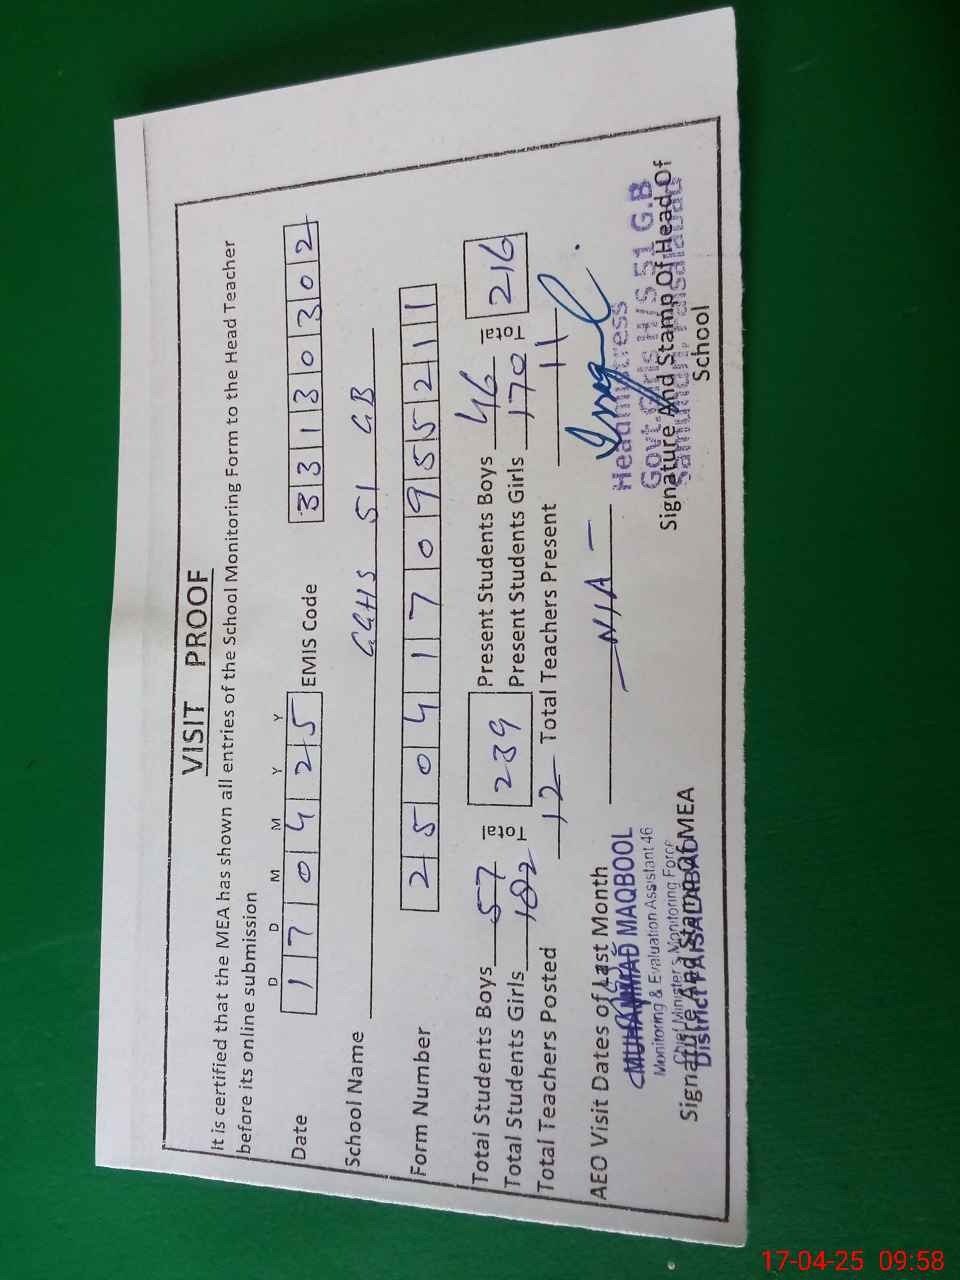 VISIT PROOF
It is certified that the MEA has shown all entries of the School Monitoring Form to the Head Teacher
before its online submission
D D M M Y Y
Date 170425 EMIS Code 33130302
School Name GGHS 51 GB
Form Number 2504170955211
Total Students Boys 57 Total 239 Present Students Boys 46 Total 216
Total Students Girls 182 Present Students Girls 170
Total Teachers Posted 12 Total Teachers Present 11
AEO Visit Dates of Last Month - N/A -
MUHAMMAD MAQBOOL
Monitoring & Evaluation Assistant 46
Chief Minister's Monitoring Force
District FAISALABAD
Signature And Stamp Of MEA
Headmistress
Govt. Girls H/S 51 G.B
Samundri, Faisalabad
Signature And Stamp Of Head Of
School
17-04-25 09:58